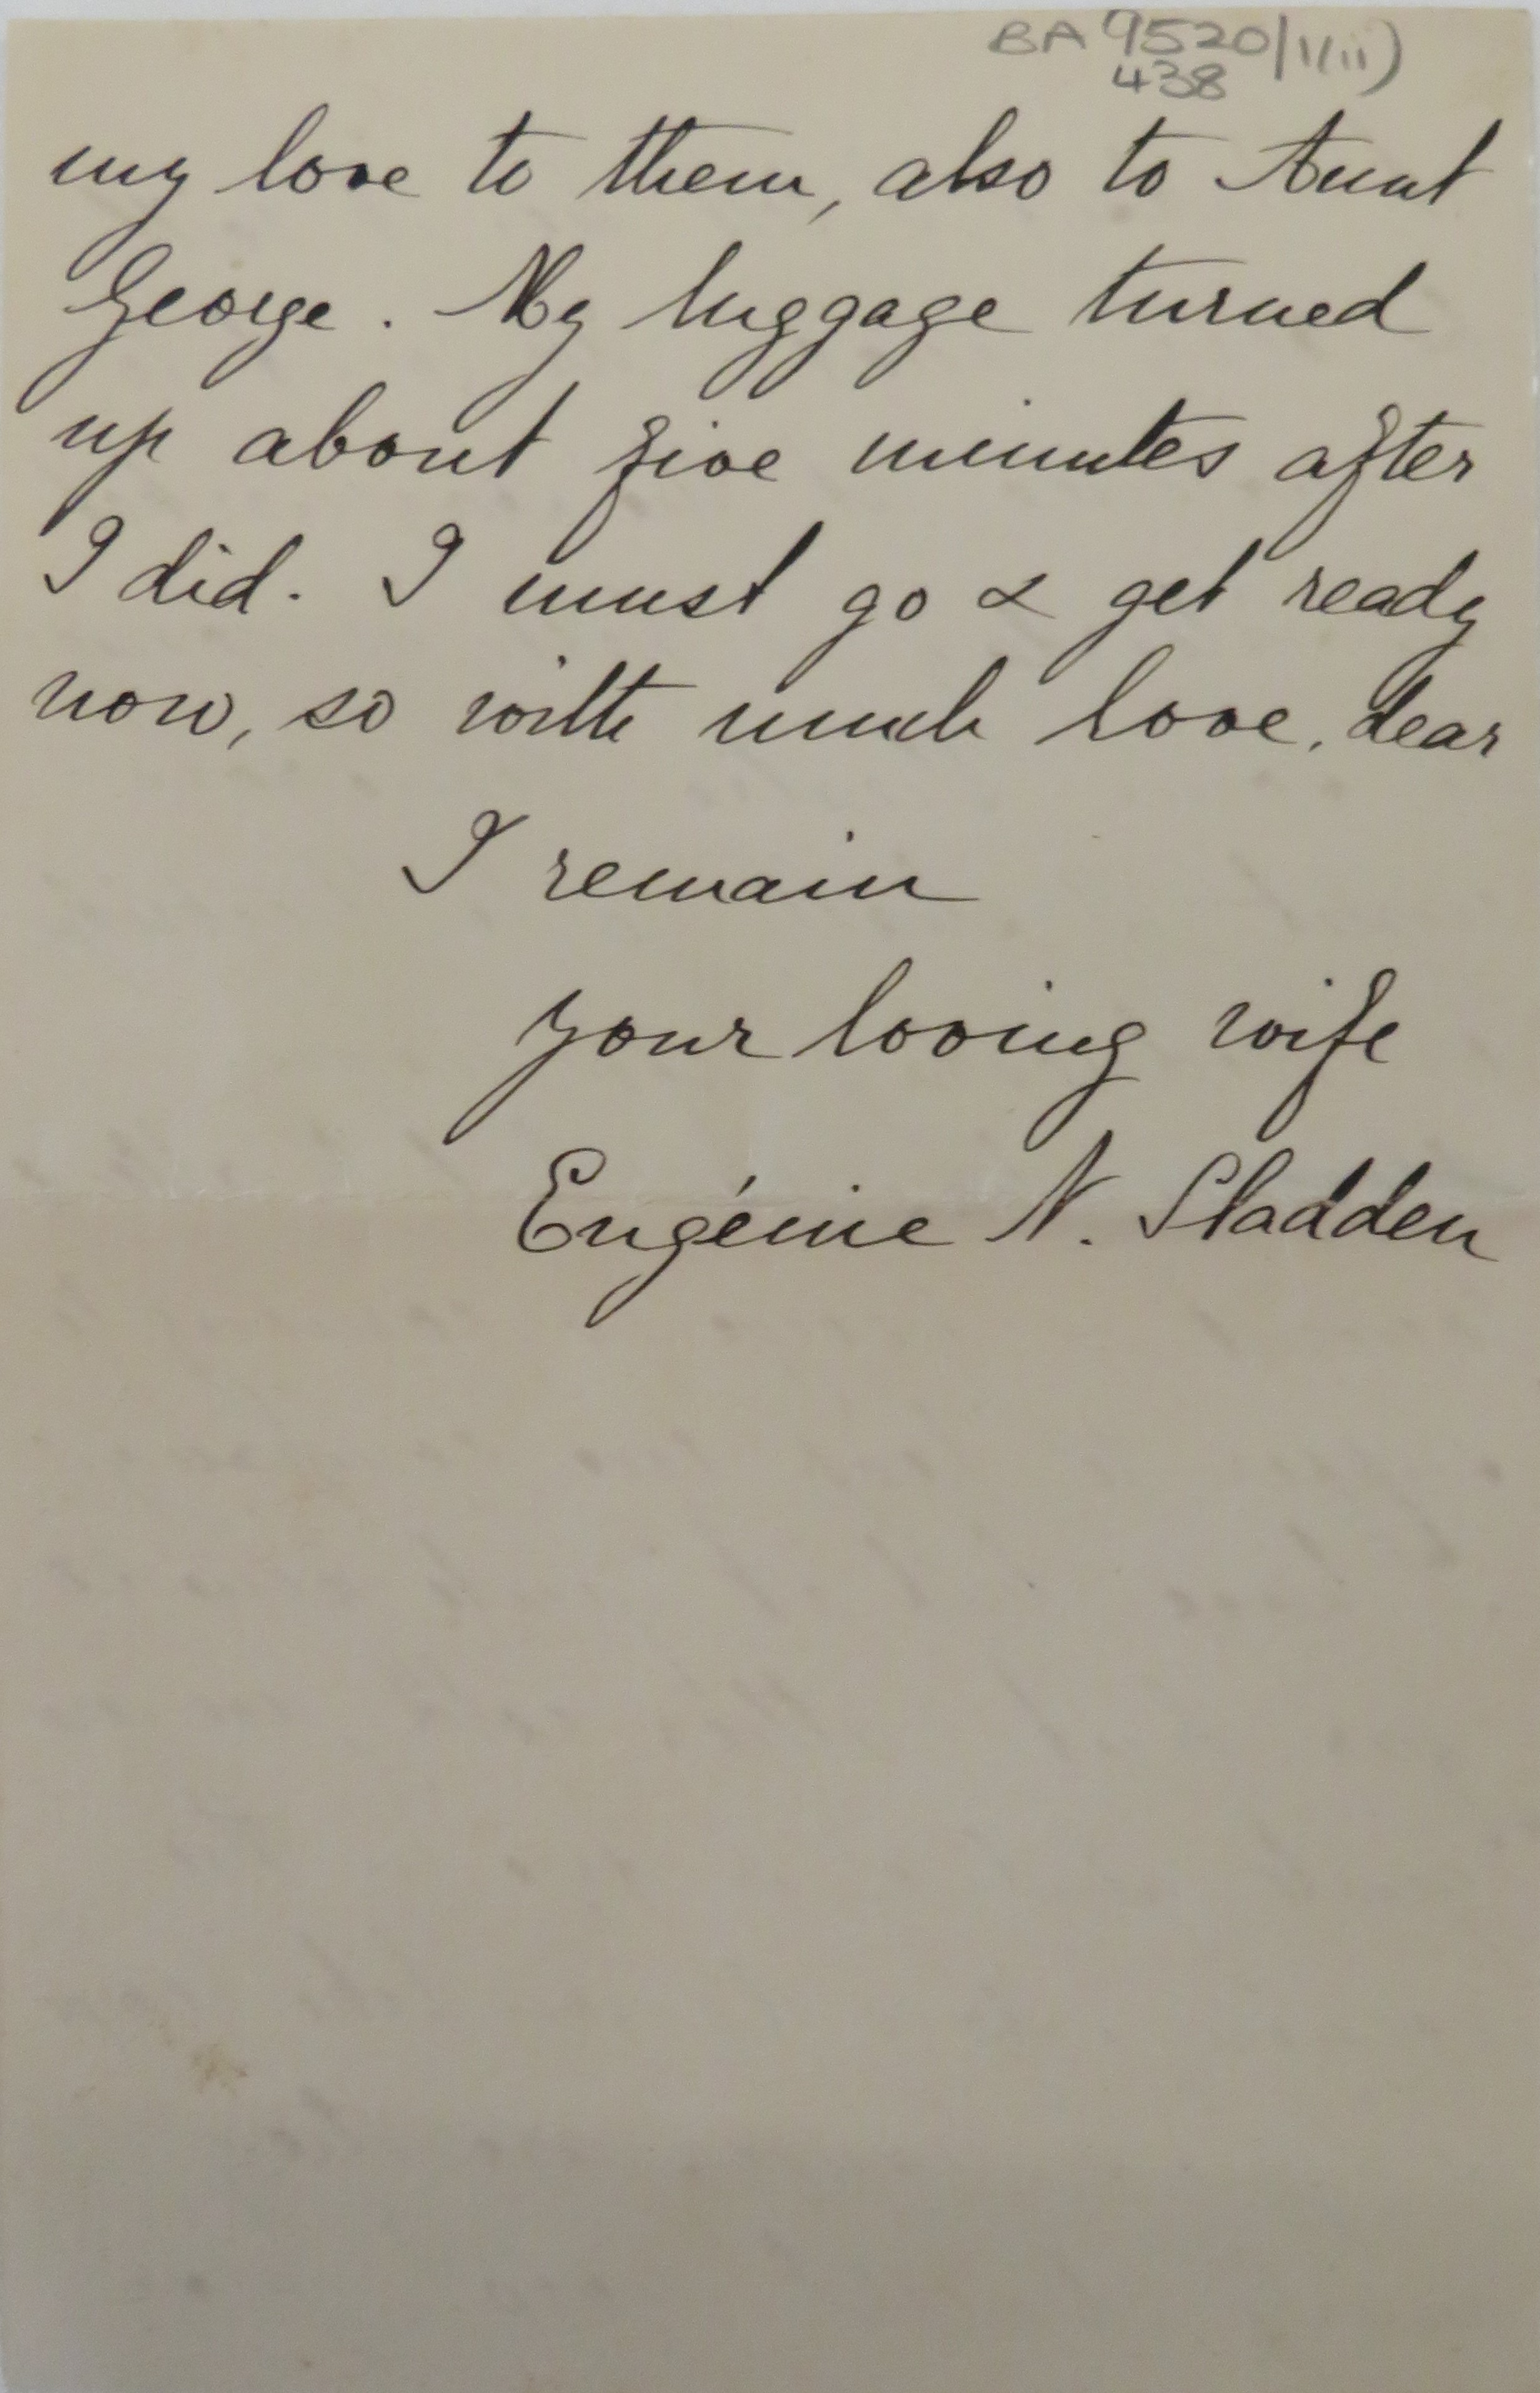 BA 9520/1(ii)
438
my love to them, also to Aunt
George. My luggage turned
up about five minutes after
I did. I must go & get ready
now, so with much love, dear
I remain
your loving wife
Eugénie N. Sladden